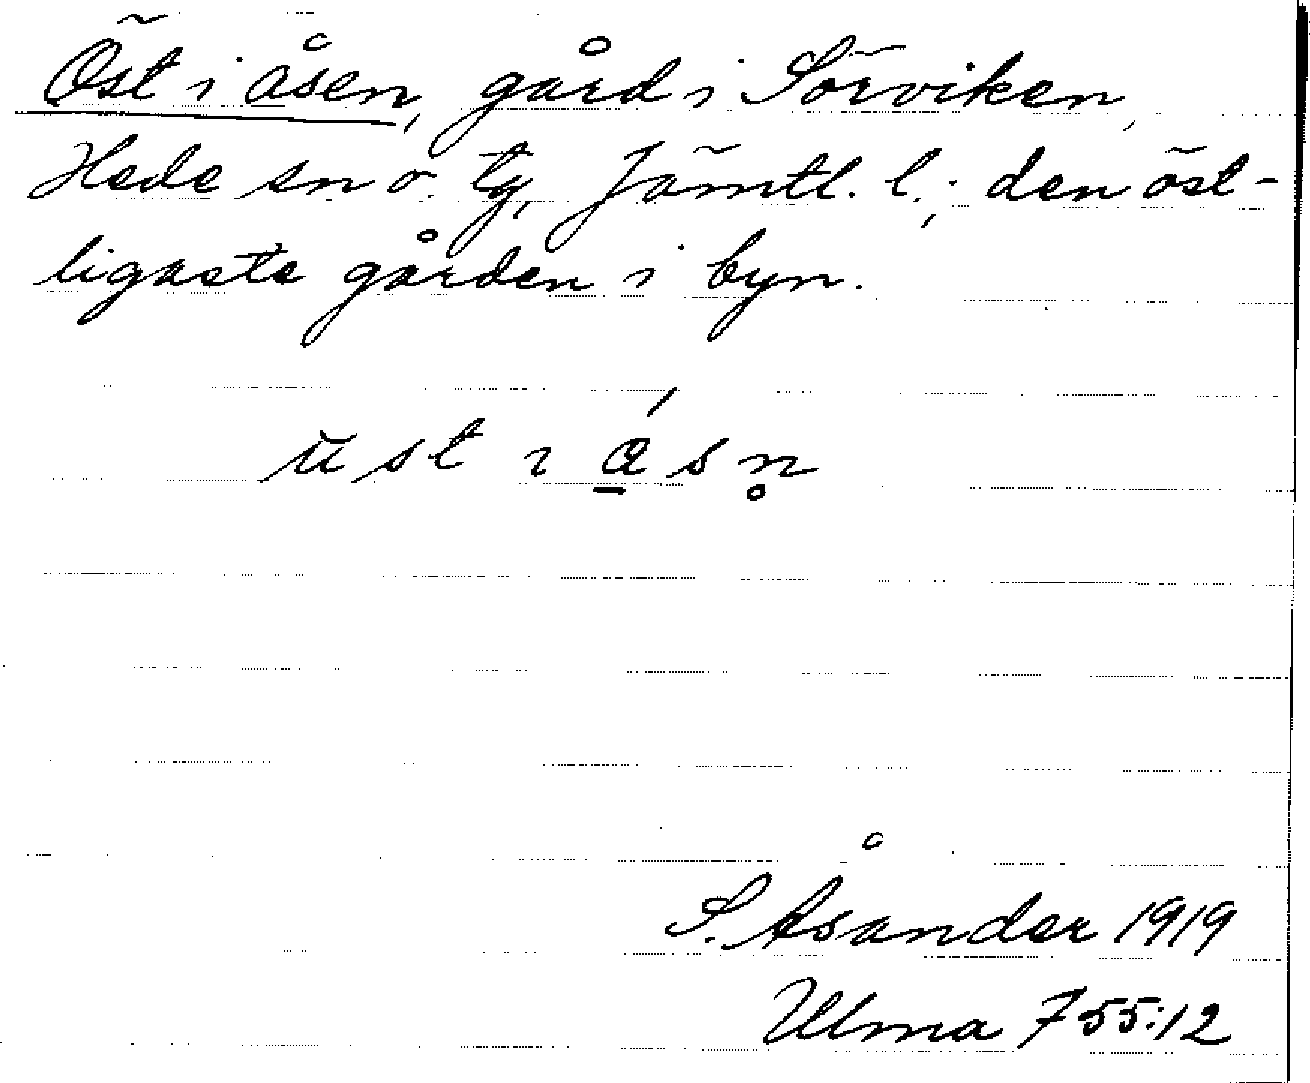 Öst i åsen, gård i Sörviken,
Hede sn o. tg, Jämtl. l.; den öst-
ligaste gården i byn.
ūst ı á̱sn̥
S. Åsander 1919
Ulma 755:12